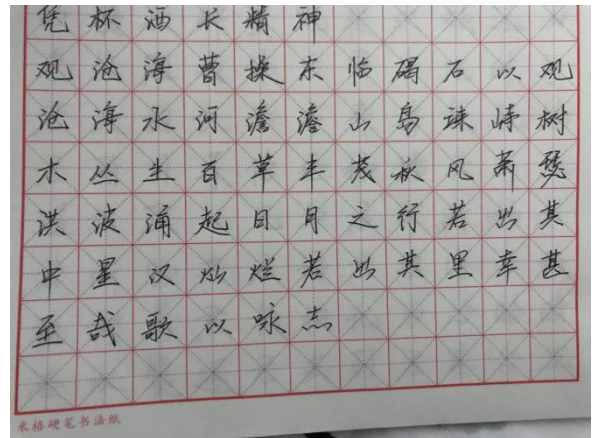 凭杯酒长精神
观沧海曹操东临碣石以观
沧海水河澹澹山岛竦峙树
木丛生百草丰茂秋风萧瑟
洪波涌起日月之行若出其
中星汉灿烂若出其里幸甚
至哉歌以咏志
米格硬笔书法纸